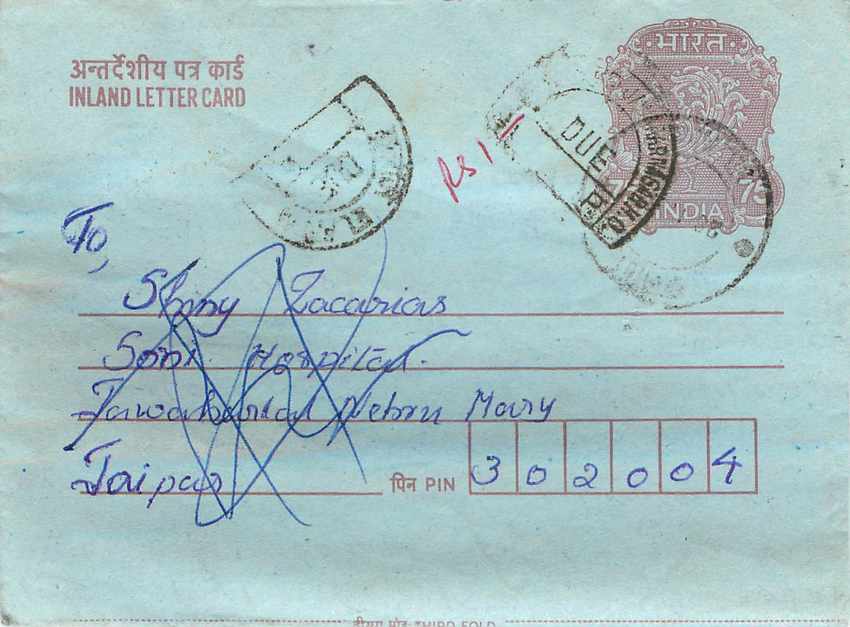 भारत
अन्तर्देशीय पत्र कार्ड
INLAND LETTER CARD
Rs 1/-
DUE
75 INDIA 75
To,
Shiny Zacarias
Soni Hospital.
Jawaharlal Nehru Mary
Jaipur पिन PIN 302004
THIRD FOLD